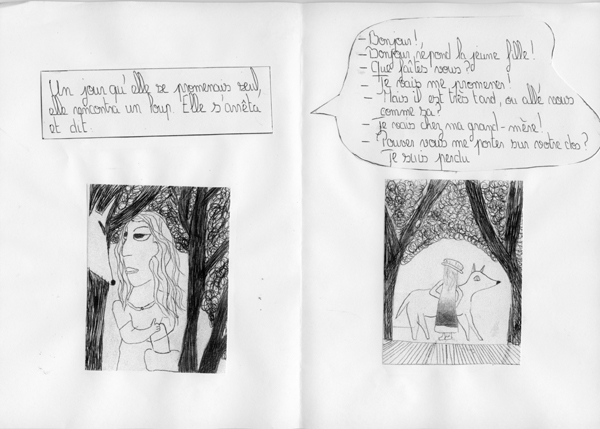 Un jour qu'elle se promenais seul,
elle rencontra un loup. Elle s'arrêta
et dit.
– Bonjour!
– Bonjour, répond la jeune fille!
– Que faîtes vous?
– Je vais me promener!
– Mais il est très tard, ou allé vous
comme sa?
– Je vais chez ma grand-mère!
– Pouvez vous me porter sur votre dos?
Je suis perdu